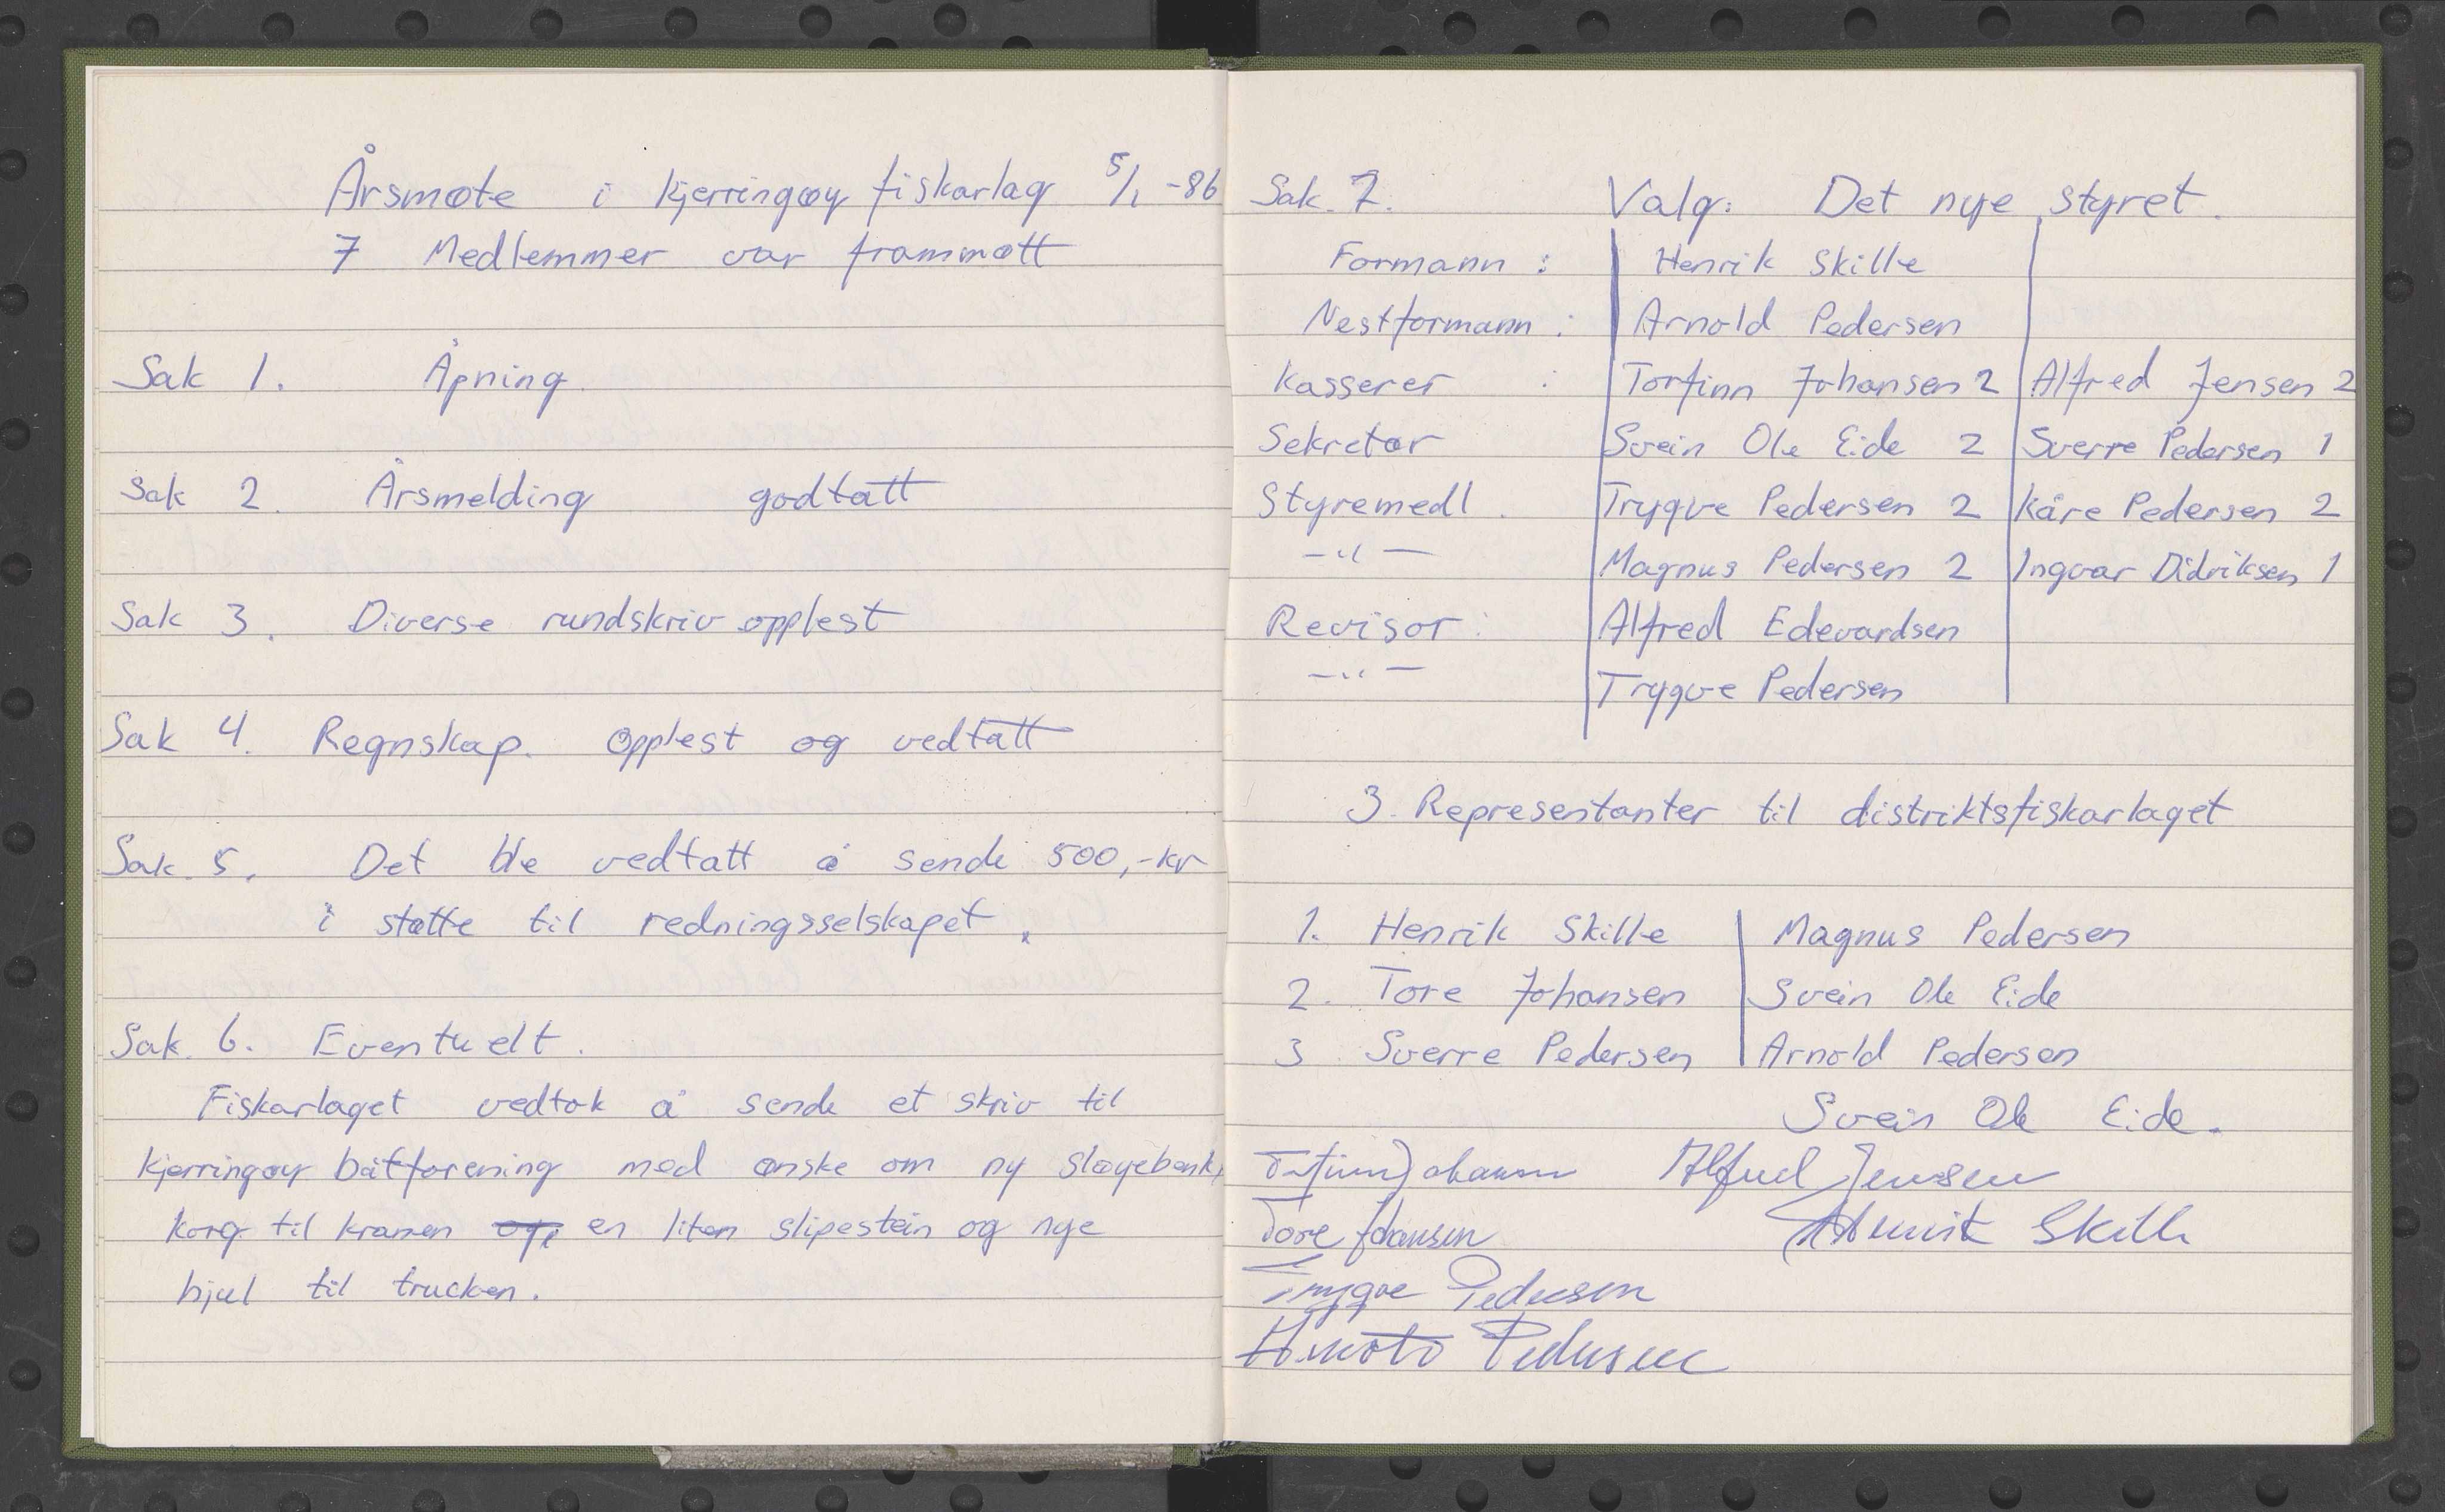 Årsmøte i Kjerringøy fiskarlag 5/1 -86
7 Medlemmer var frammøtt
Sak 1. Åpning
Sak 2. Årsmelding godtatt
Sak 3. Diverse rundskriv opplest
Sak 4. Regnskap. Opplest og vedtatt
Sak. 5. Det ble vedtatt å sende 500,-kr
i støtte til redningsselskapet.
Sak. 6. Eventuelt.
Fiskarlaget vedtok å sende et skriv til
Kjerringøy båtforening med ønske om ny sløyebenk,
korg til kranen en liten slipestein og nye
hjul til trucken.
Sak. 7. Valg: Det nye styret.
Formann : Henrik Skille
Nestformann : Arnold Pedersen
Kasserer : Torfinn Johansen 2 Alfred Jensen 2
Sekretær Svein Ole Eide 2 Sverre Pedersen 1
Styremedl. Trygve Pedersen 2 Kåre Pedersen 2
-"- Magnus Pedersen 2 Ingvar Didriksen 1
Revisor: Alfred Edevardsen
-"- Trygve Pedersen
3. Representanter til distriktsfiskarlaget
1. Henrik Skille Magnus Pedersen
2. Tore Johansen Svein Ole Eide
3 Sverre Pedersen Arnold Pedersen
Svein Ole Eide.
Torfinn Johansen Alfred Jensen
Tore Johansen Henrik Skille
Trygve Pedersen
Pedersen